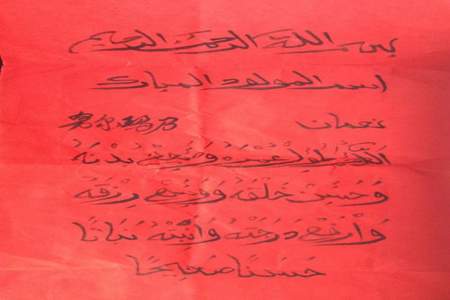 بسم الله الرحمن الرحيم
اسم المولود المبارك
نعمان
اَللّٰهُمَّ طَوِّلْ عُمْرَهُ وَصَحِّحْ بَدَنَهُ
وَحَسِّنْ خُلُقَهُ وَوَسِّعْ رِزْقَهُ
وَارْفَعْ دَرَجَتَهُ وَانْبِتْهُ نَبَاتًا
حَسَنًا صَحِيحًا